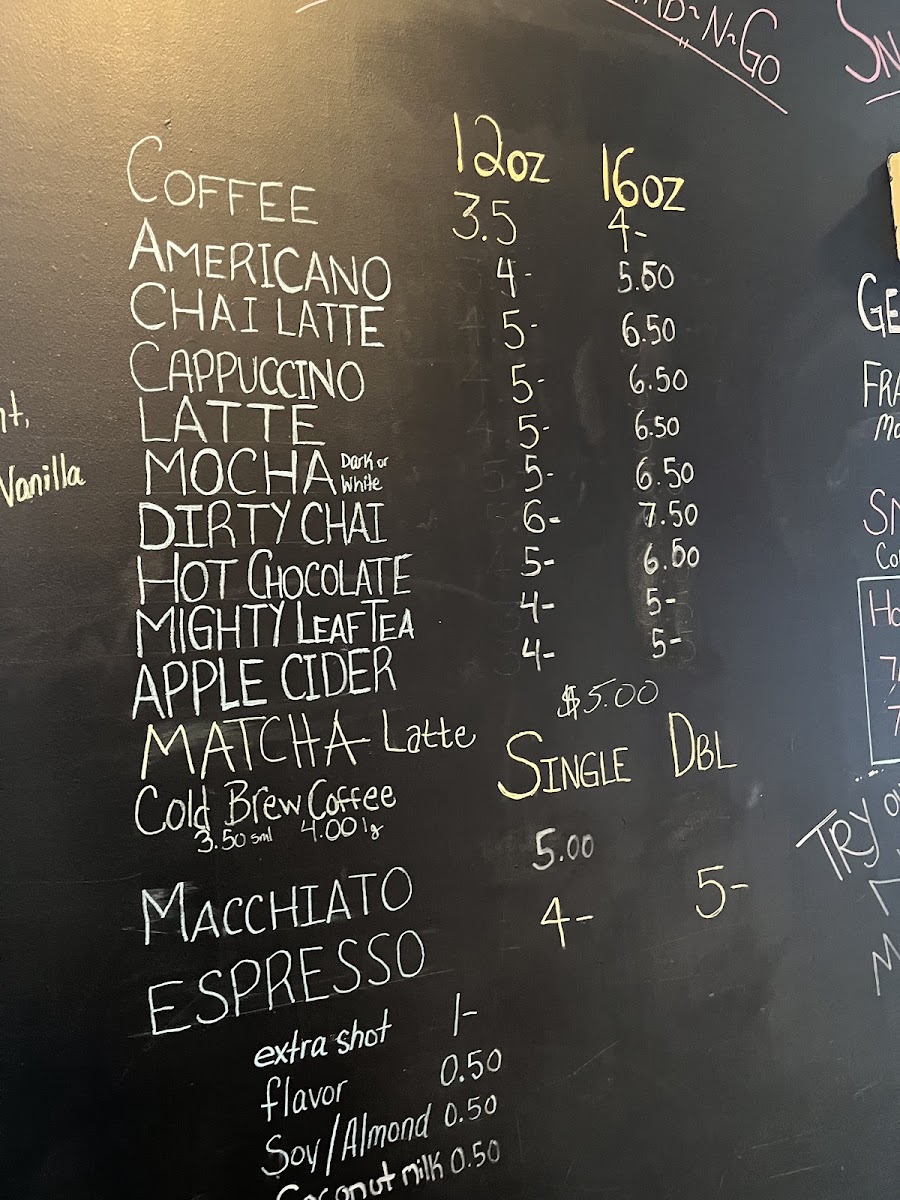 12oz 16oz
COFFEE 3.5 4-
AMERICANO 4- 5.50
CHAI LATTE 5- 6.50
CAPPUCCINO 5- 6.50
LATTE 5- 6.50
MOCHA Dark or White 5- 6.50
DIRTY CHAI 6- 7.50
HOT CHOCOLATE 5- 6.50
MIGHTY LEAF TEA 4- 5-
APPLE CIDER 4- 5-
MATCHA Latte $5.00
SINGLE DBL
Cold Brew Coffee
3.50 sml 4.00 lg
MACCHIATO 5.00
ESPRESSO 4- 5-
extra shot 1-
flavor 0.50
Soy/Almond 0.50
Coconut milk 0.50
Vanilla
TRY